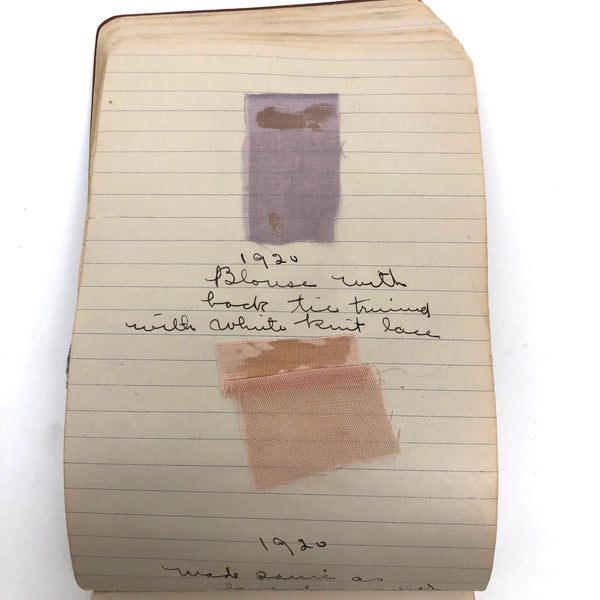 1920
Blouse with
back tie trimed
with white knit lace
1920
Made same as
lavender